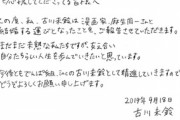 応援してくださってる皆さんへ
この度、私、古川未鈴は漫画家、麻生周一さんと
結婚する運びとなったことを、ご報告させていただきます。
まだまだ未熟な私たちですが、支え合い
自分たちらしい人生を歩んでいきたいと思っています。
今後ともでんぱ組.incの古川未鈴として精進していきますので
どうぞよろしくお願い申し上げます。
2019年9月18日
古川未鈴